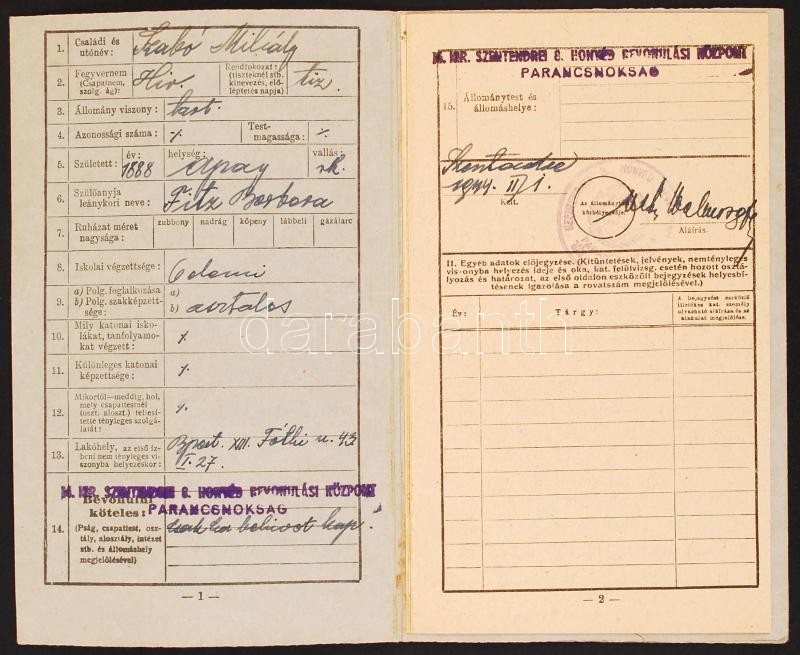 1. Családi és utónév: Szabó Mihály
2. Fegyvernem (Csapatnem, szolg. ág): Hir. Rendfokozat: (tiszteknél stb. kinevezés, előléptetés napja) tiz.
3. Állomány viszony: tart.
4. Azonossági száma: ⁒ Testmagassága: ⁒
5. Született: év: 1888 helység: vallás: rk.
6. Szülőanyja leánykori neve: Fitz Borbora
7. Ruházat méret nagysága: zubbony nadrág köpeny lábbeli gázálarc
8. Iskolai végzettsége: 6 elemi
9. a) Polg. foglalkozása a)
b) Polg. szakképzettsége: b) asztalos
10. Mily katonai iskolákat, tanfolyamokat végzett: ⁒
11. Különleges katonai képzettsége: ⁒
12. Mikortól—meddig, hol, mely csapattestnél (oszt. aloszt.) teljesítette tényleges szolgálatát: ⁒
13. Lakóhely, az első ízbeni nem tényleges viszonyba helyezéskor: Bpest. XIII. Fóthi u. 43
I. 27.
M. KIR. SZENTENDREI 8. HONVÉD BEVONULÁSI KÖZPONT
PARANCSNOKSÁG
14. Bevonulni köteles:
(Pság, csapattest, osztály, alosztály, intézet stb. és állomáshely megjelölésével)
csak ha behivót kap.
— 1 —
M. KIR. SZENTENDREI 8. HONVÉD BEVONULÁSI KÖZPONT
PARANCSNOKSÁG
15. Állománytest és állomáshelye:
Szentendre
1944. II/1.
Kelt.
Az állományt. körbélyegzője.
Aláírás.
II. Egyéb adatok előjegyzése. (Kitüntetések, jelvények, nemtényleges
viszonyba helyezés ideje és oka, kat. felülvizsg. esetén hozott osztályozás
és határozat, az első oldalon eszközölt bejegyzések helyesbítésének
igazolása a rovatszám megjelölésével.)
Év: Tárgy: A bejegyzést eszközlő illetékes kat. személy olvasható aláírása és az alakulat megjelölése.
— 2 —
darabanth